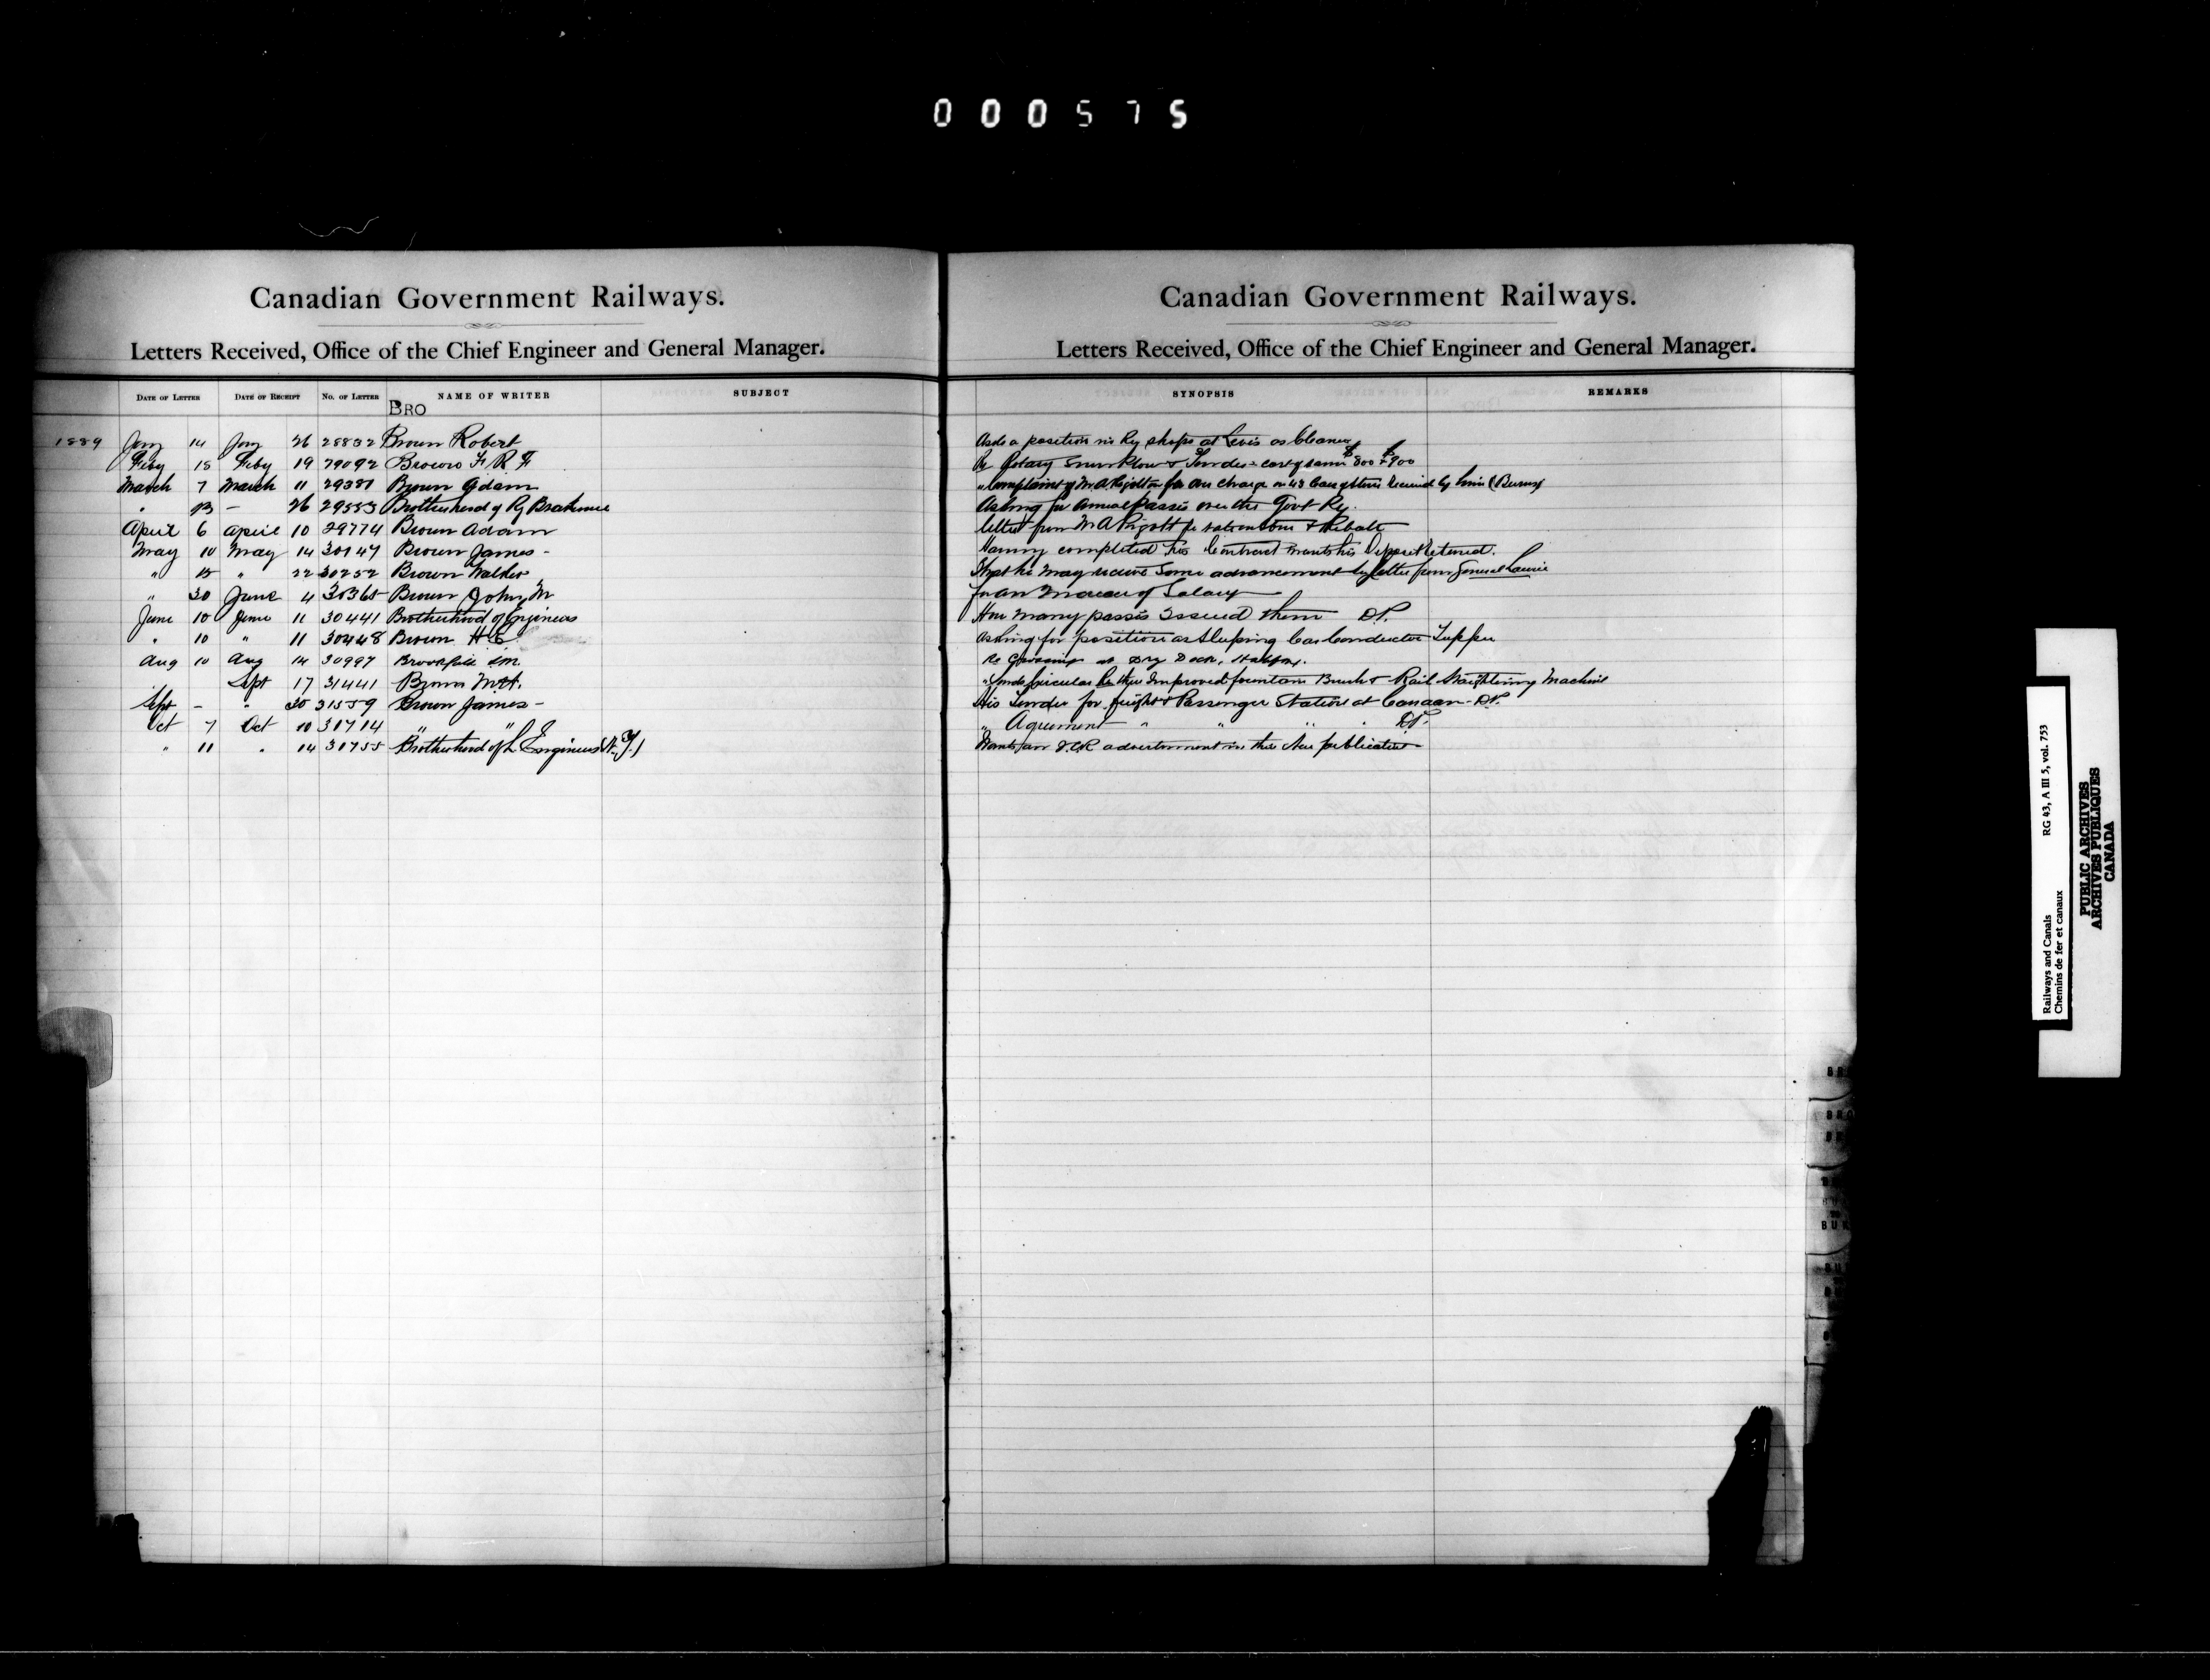 000575
Canadian Government Railways.
Letters Received, Office of the Chief Engineer and General Manager.
DATE OF LETTER DATE OF RECEIPT No. OF LETTER NAME OF WRITER SUBJECT
BRO
1889 Jany 14 Jany 26 28832 Brown Robert
Feby 15 Feby 19 29092 Brown F R F
March 7 March 11 29381 Brown Adam
" 13 - 26 29553 Brotherhood of Ry Brakemen
April 6 April 10 29774 Brown Adam
May 10 May 14 30147 Brown James -
" 15 " 22 30252 Brown Walter
" 30 June 4 30365 Brown John M
June 10 June 11 30441 Brotherhood of Engineers
" 10 " 11 30448 Brown H E
Aug 10 Aug 14 30997 Brookfield S.M.
Sept 17 31441 Brown
Sept - " 30 31559 Brown James -
Oct 7 Oct 10 31714 " "
" 11 " 14 31755 Brotherhood of L Engineers (N.Y.)
Canadian Government Railways.
Letters Received, Office of the Chief Engineer and General Manager.
SYNOPSIS REMARKS
Asks a position in Ry shops at Levis as Cleaner
Re Rotary Snow Plow & Tender - cost of same $800 $900
" Complaint of M. A. for over charge on 43 received by him (Burns)
Asking for Annual Passes over the Govt Ry.
letter from M A Pigott re & Rebate
Having completed his Contract wants his Deposit returned.
That he may receive some advancement by letter from General Laurie
For an Increase of Salary
How many passes issued them D.P.
Asking for position as Sleeping Car Conductor Tupper
Re Crossing at Dry Dock, Halifax.
" Sends Circular Re their Improved fountain Brush & Rail Straightening Machine
His Tender for freight & Passenger Station at Canaan - D.P.
" Agreement " " " " D.P.
Wants an I.C.R advertisement in their New publication
BUR
RG 43, A III 5, vol. 753
Railways and Canals
Chemins de fer et canaux
PUBLIC ARCHIVES
ARCHIVES PUBLIQUES
CANADA